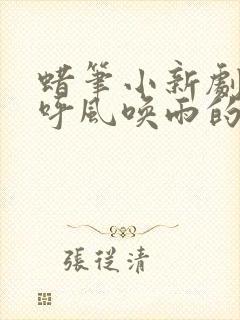 蜡筆小新劇
呼風喚雨的
張從清